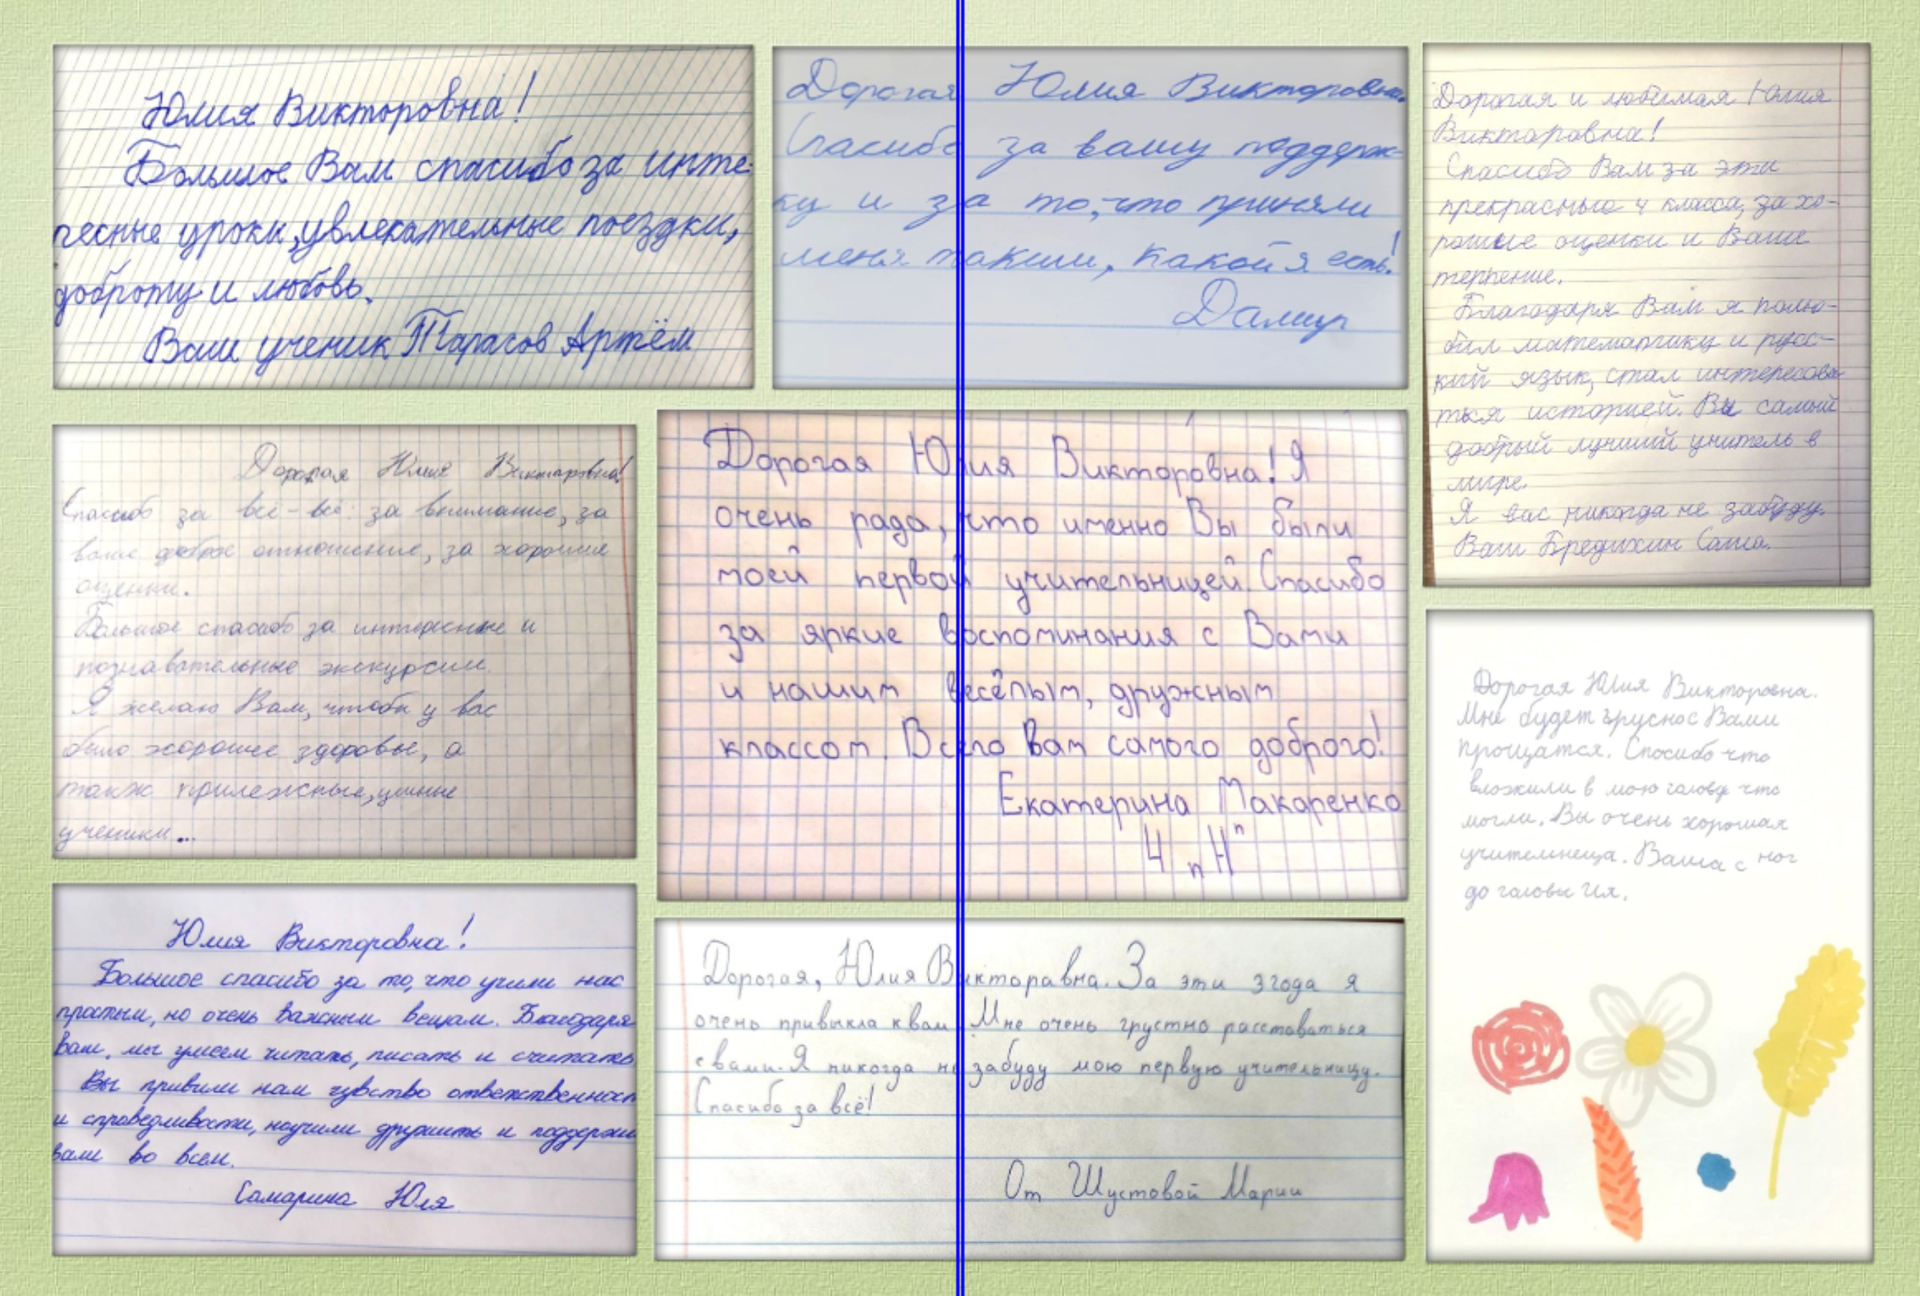 Юлия Викторовна!
Большое Вам спасибо за инте-
ресные уроки, увлекательные поездки,
доброту и любовь.
Ваш ученик Тарасов Артём
Дорогая Юлия Викторовна.
Спасибо за вашу поддерж-
ку и за то, что приняли
меня таким, какой я есть!
Дамир
Дорогая и любимая Юлия
Викторовна!
Спасибо Вам за эти
прекрасные 4 класса, за хо-
рошие оценки и Ваше
терпение.
Благодаря Вам я полю-
бил математику и русс-
кий язык, стал интересова-
ться историей. Вы самый
добрый лучший учитель в
мире.
Я вас никогда не забуду.
Ваш Бредихин Саша.
Дорогая Юлия Викторовна!
Спасибо за всё-всё: за внимание, за
ваше доброе отношение, за хорошие
оценки.
Большое спасибо за интересные и
познавательные экскурсии.
Я желаю Вам, чтобы у вас
было хорошее здоровье, а
также прилежные, умные
ученики...
Дорогая Юлия Викторовна! Я
очень рада, что именно Вы были
моей первой учительницей. Спасибо
за яркие воспоминания с Вами
и нашим весёлым, дружным
классом. Всего Вам самого доброго!
Екатерина Макаренко
4 "Н"
Дорогая Юлия Викторовна.
Мне будет грусно с Вами
прощатся. Спосибо что
вложили в мою галову что
могли. Вы очень хорошая
учителнеца. Ваша с ног
до галовы Ия.
Юлия Викторовна!
Большое спасибо за то, что учили нас
простым, но очень важным вещам. Благодаря
вам, мы умеем читать, писать и считать
Вы привили нам чувство ответственност
и справедливости, научили дружить и поддержи
вали во всем.
Самарина Юля
Дорогая, Юлия Викторавна. За эти 3 года я
очень привыкла к вам. Мне очень грустно расставаться
с вами. Я никогда не забуду мою первую учительницу.
Спасибо за всё!
От Шустовой Марии